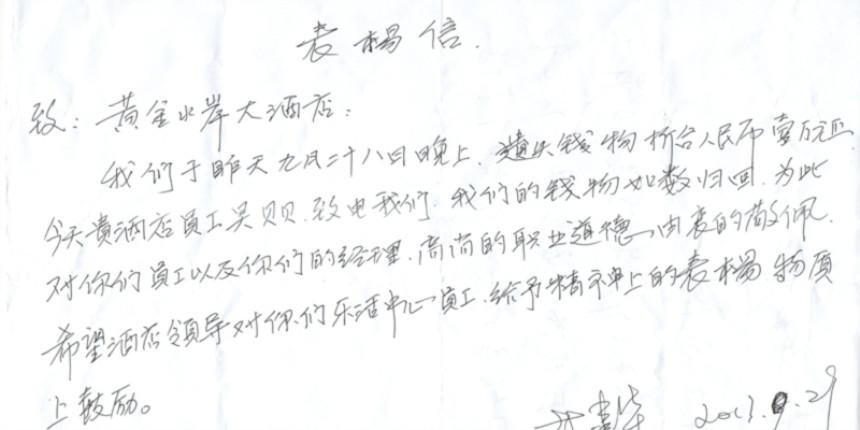 表杨信.
致：黄金水岸大酒店：
我们于昨天九月二十八日晚上.遗失钱物折合人民币壹万元正
今天贵酒店员工吴贝贝.致电我们.我们的钱物如数归回.为此
对你们员工以及你们的经理.高尚的职业道德.由衷的敬佩.
希望酒店领导对你们乐活中心员工.给予精神上的表杨物质
上鼓励。
2013.9.29